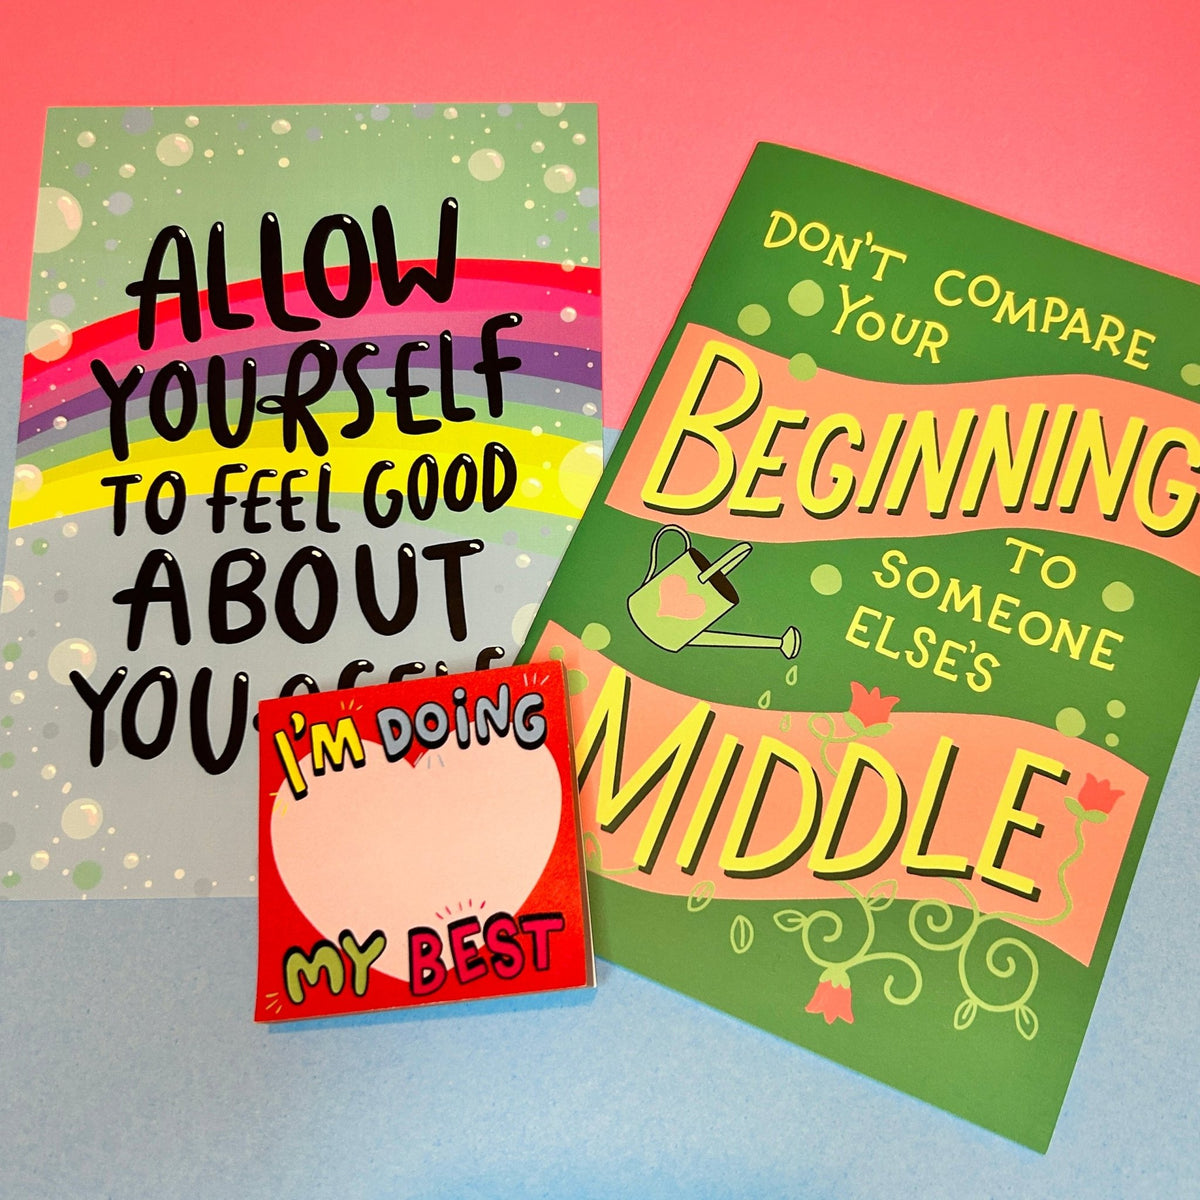 ALLOW
YOURSELF
TO FEEL GOOD
ABOUT
YOURSELF
I'M DOING
MY BEST
DON'T COMPARE
YOUR
BEGINNING
TO
SOMEONE
ELSE'S
MIDDLE